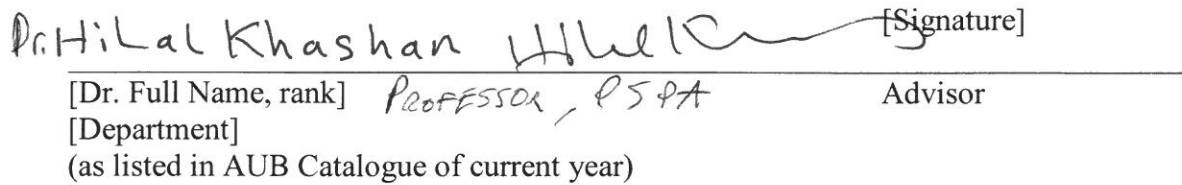 Dr. HiLal Khashan [Signature]
[Dr. Full Name, rank] PROFESSOR, PSPA Advisor
[Department]
(as listed in AUB Catalogue of current year)